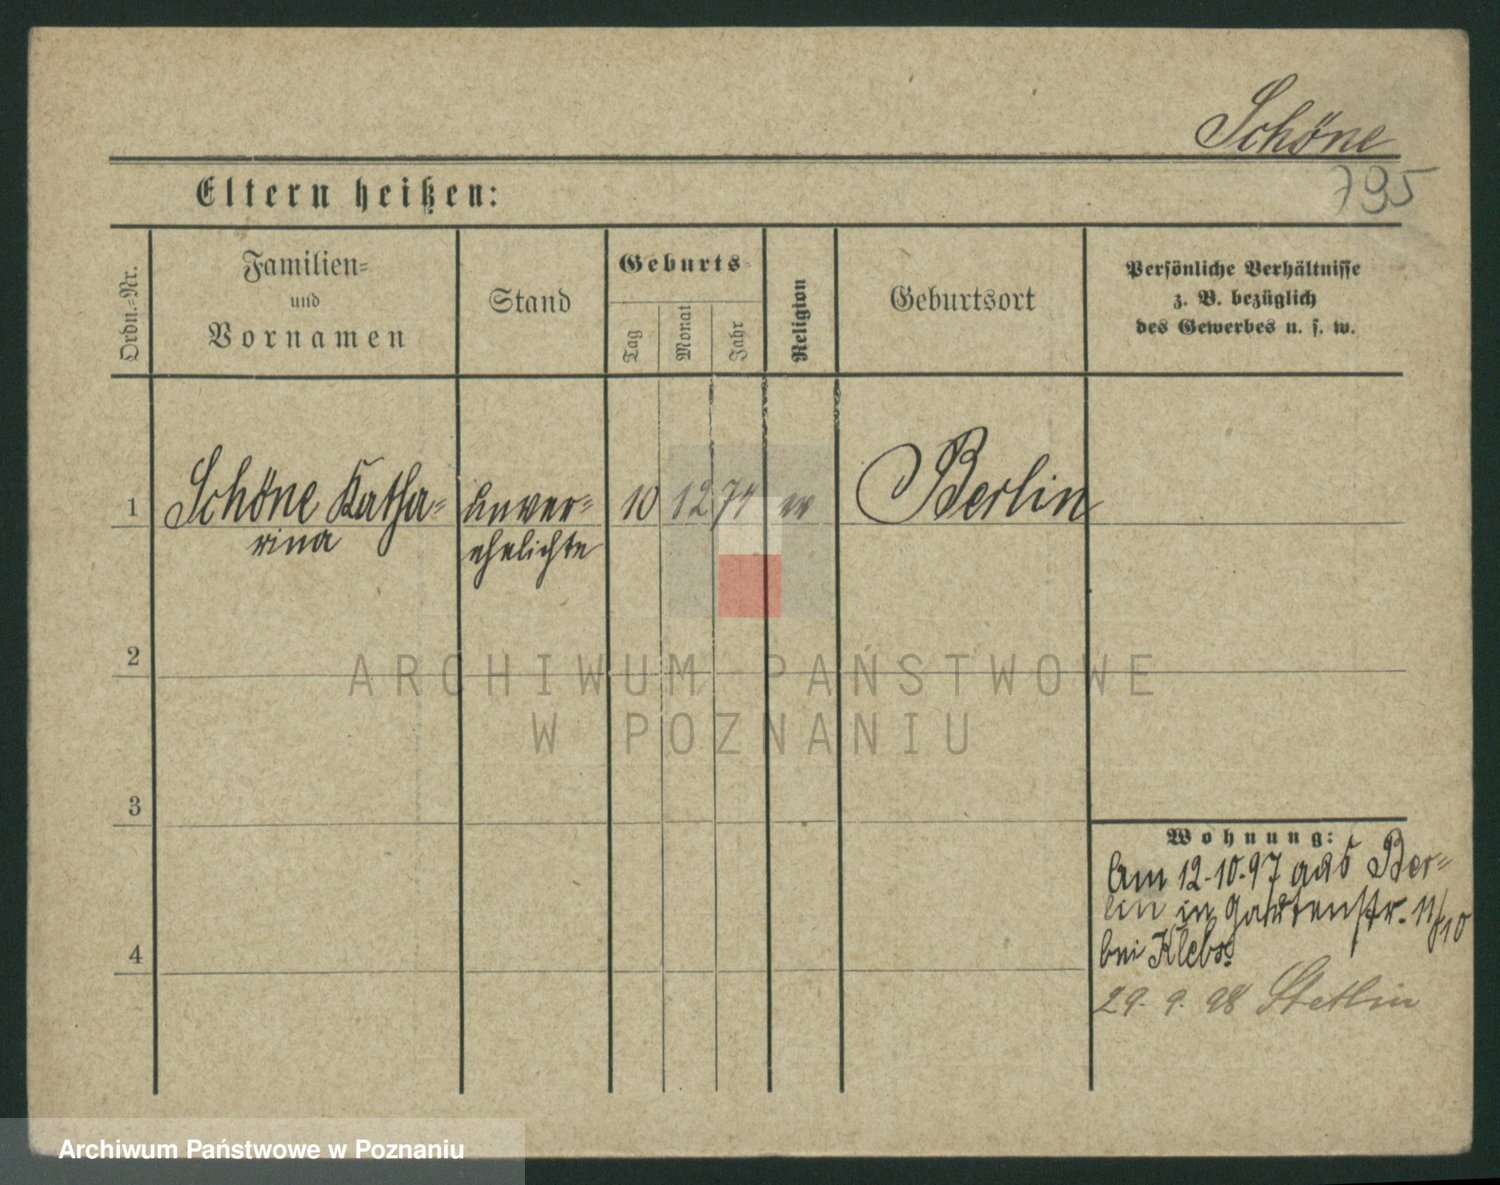 Schöne
795
Eltern heißen:
Ordn.-Nr.
Familien-
und
Vornamen
Stand
Geburts-
Tag
Monat
Jahr
Religion
Geburtsort
Persönliche Verhältnisse
z. B. bezüglich
des Gewerbes u. s. w.
1 Schöne Katha- unver- 10 12 74 ev Berlin
rina ehelichte
2
ARCHIWUM PAŃSTWOWE
W POZNANIU
3
Wohnung:
Am 12.10.97 aus Ber-
lin in Gartenstr. 11/10
bei Klebs
4
29. 9. 98 Stettin
Archiwum Państwowe w Poznaniu